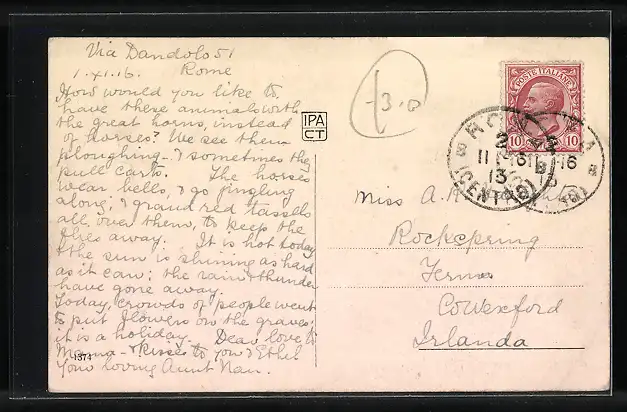 Via Dandolo 51
1.XI.16. Rome
How would you like to
have these animals with
the great horns, instead
of horses? We see them
ploughing & sometimes they
pull carts. The horses
wear bells, & go jingling
along; & grand red tassells
all over them, to keep the
flies away. It is hot today
& the sun is shining as hard
as it can; the rain & thunder
have gone away.
Today, crowds of people went
to put flowers on the graves,
it is a holiday. Dear love to
Mama & kisses to you & Ethel
Your loving Aunt Nan.
1374
IPA
CT
3.0
POSTE ITALIANE
10 10
ROMA
16
13
(CENTRO)
Miss A.
Rockspring
Ferns
Co Wexford
Irlanda